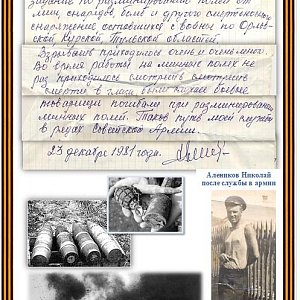 задание по разминированию полей от
мин, снарядов, бомб и другого смертоносного
снаряжения оставшиеся с войны по Орлов-
ской, Курской, Тульской областей.
Взрывать приходилось очень и очень много.
Во время работы на минных полях не
раз приходилось смотреть
смерти в глаза, были случаи боевые
товарищи погибали при разминировании
минных полей. Таков путь моей службы
в рядах Советской Армии.
23 декабря 1981 года.
Алеников Николай
после службы в армии